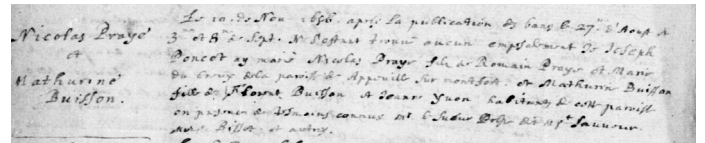 Nicolas Praye
et
Mathurine
Buisson.
Le 10. de Nov. 1656 apres la publication de bans le 27.e d'Aoust le
3.e et 8.e de Sept. Ne s'estant trouvé aucun empeschement Je Joseph
Poncet ay marié Nicolas Praye fils de Romain Praye et Marie
du de la paroisse de Appeville sur montfort, et Mathurin Buisson
fille de Florent Buisson et Jeanne Yvon habitants de cette paroisse
en presence de tesmoins connus Mr. le Sueur de St. Sauveur.
Bissot, et autres.